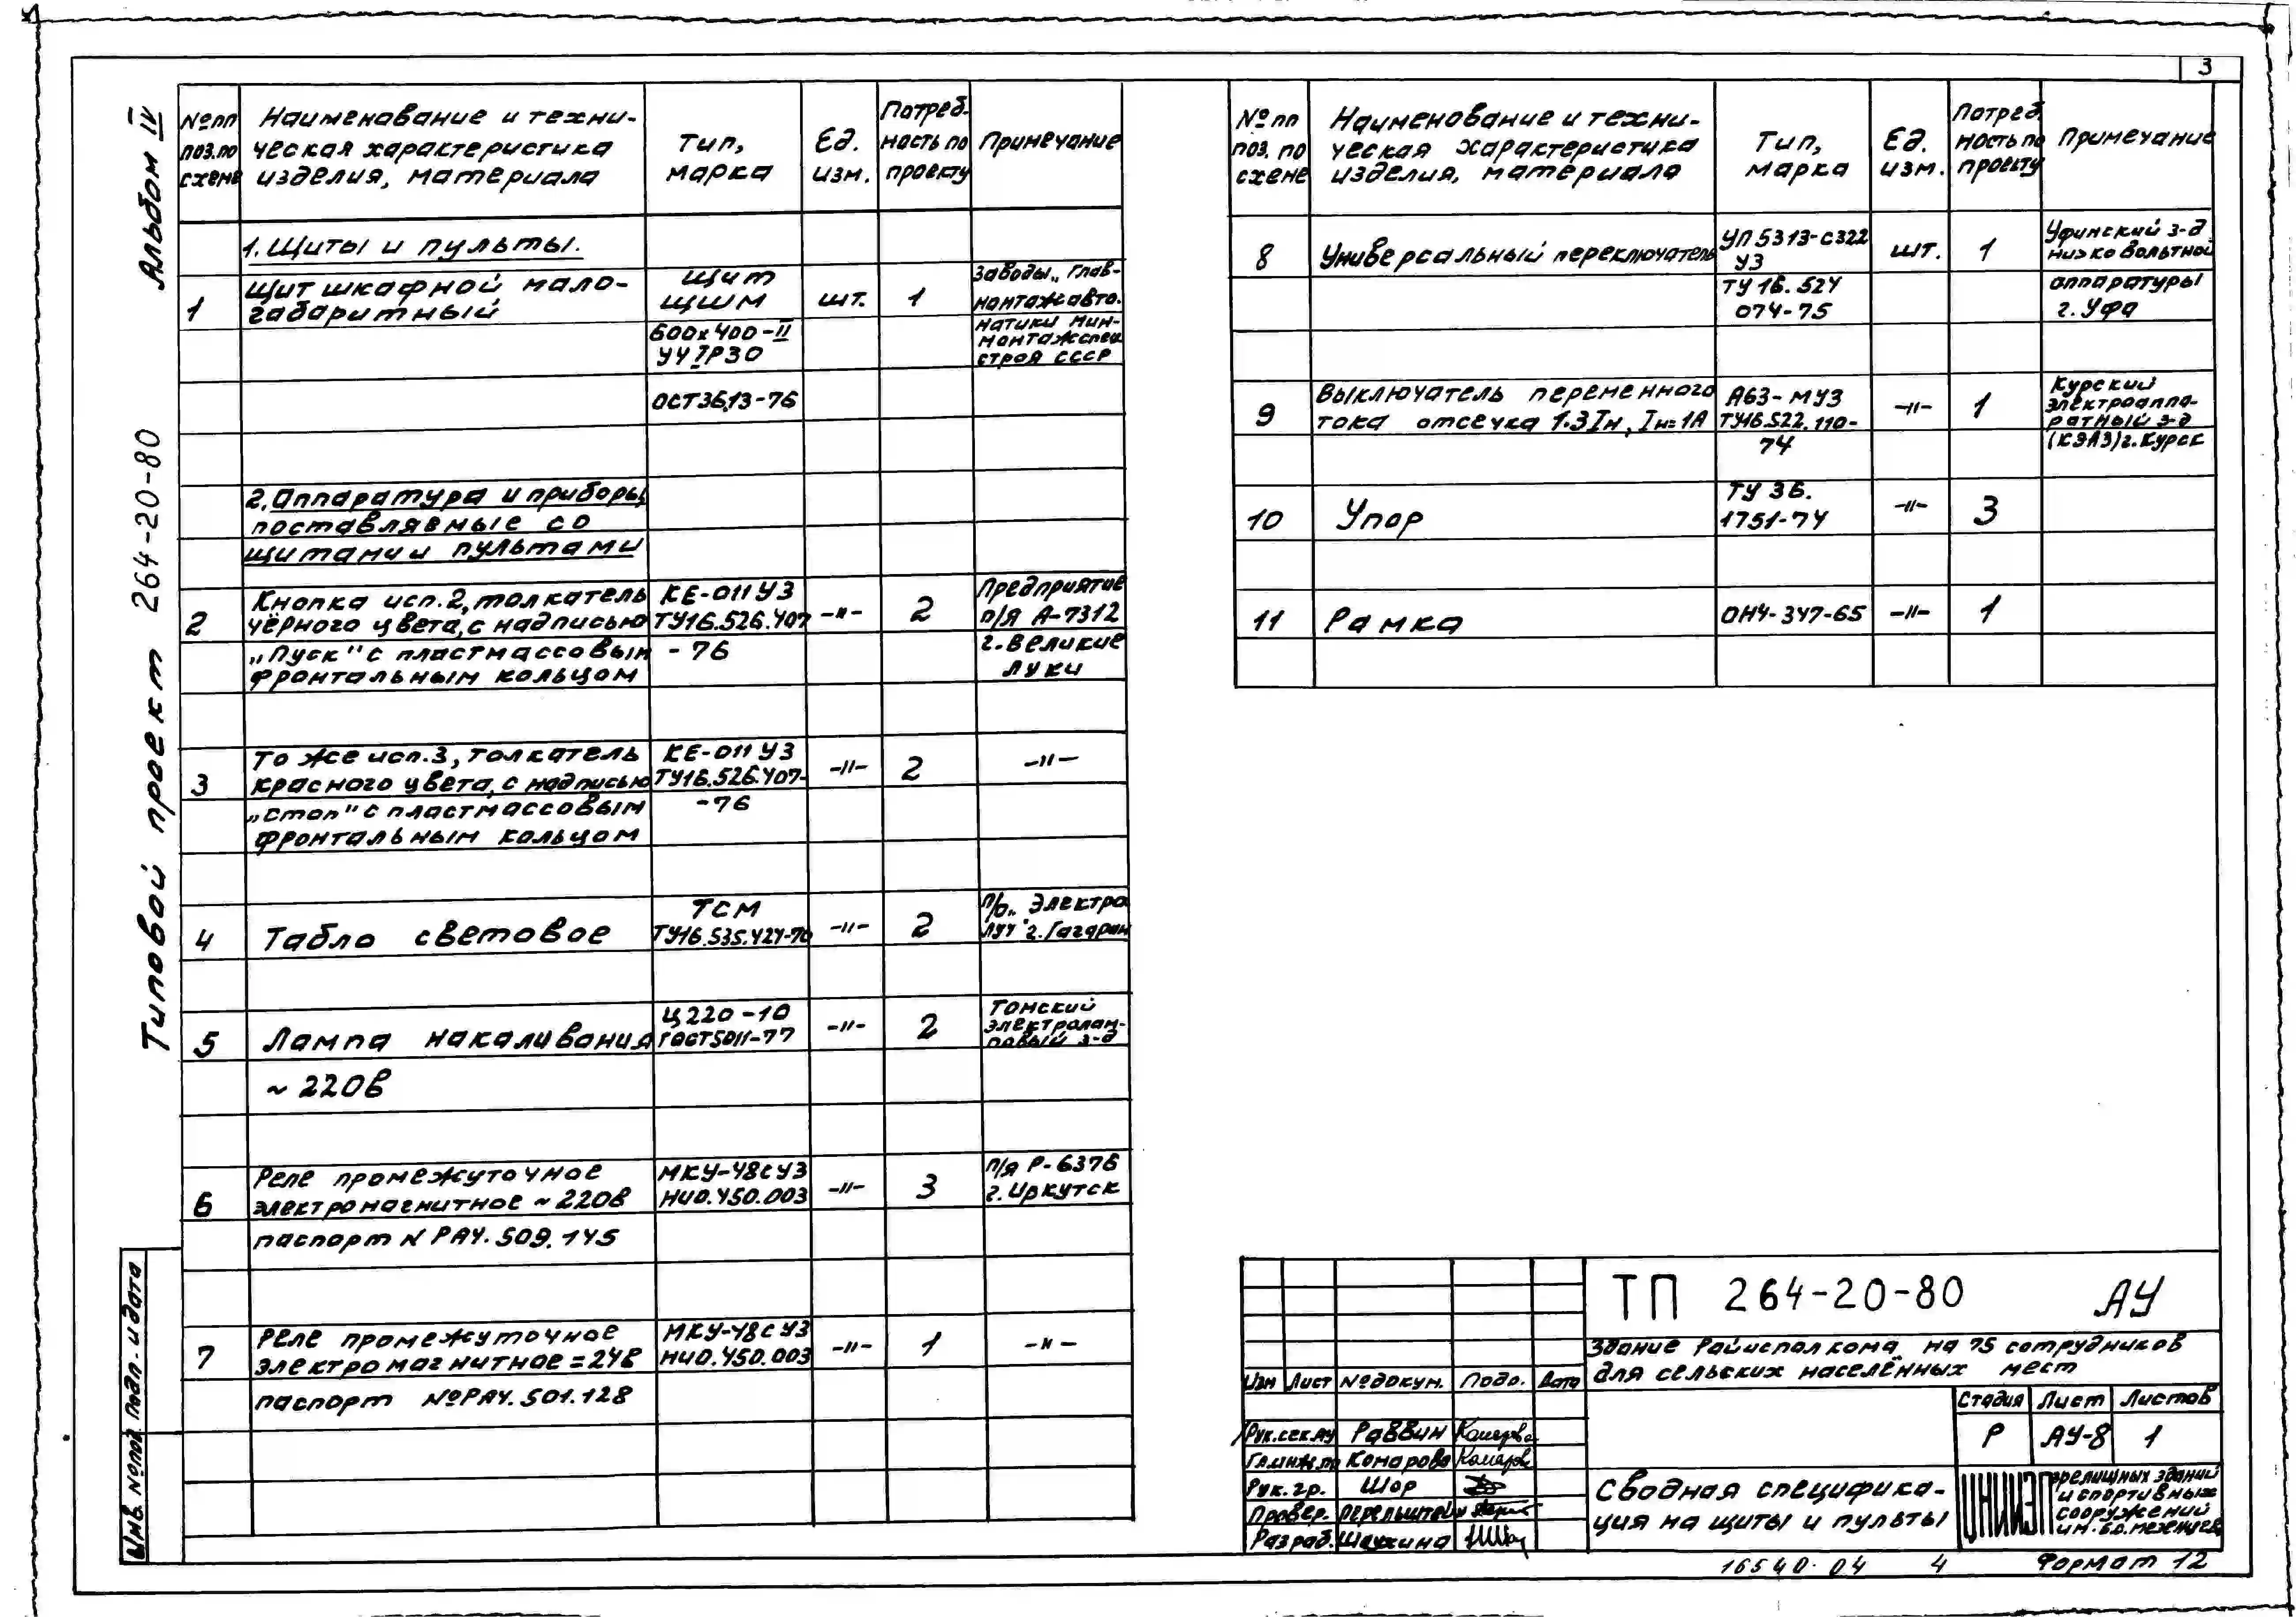 3
Альбом IV
Типовой проект 264-20-80
№ пп поз. по схеме
Наименование и техни-
ческая характеристика
изделия, материала
Тип,
марка
Ед.
изм.
Потреб-
ность по
проекту
Примечание
1. Щиты и пульты.
1
Щит шкафной мало-
габаритный
Щит
ЩШМ
600х400-II
УЧ IР30
ОСТ36.13-76
шт.
1
Заводы „Глав-
монтажавто-
матики Мин-
монтажспец
строя СССР
2. Аппаратура и приборы,
поставляемые со
щитами и пультами
2
Кнопка исп. 2, толкатель
чёрного цвета, с надписью
„Пуск" с пластмассовым
фронтальным кольцом
КЕ-011 У3
ТУ16.526.407
-76
-"-
2
Предприятие
п/я А-7312
г. Великие
Луки
3
То же исп. 3, толкатель
красного цвета, с надписью
„Стоп" с пластмассовым
фронтальным кольцом
КЕ-011 У3
ТУ16.526.407-
-76
-"-
2
-"-
4
Табло световое
ТСМ
ТУ16.535.424-70
-"-
2
п/о „Электро
луч" г. Гагарин
5
Лампа накаливания
~ 220в
Ц220-10
ГОСТ5011-77
-"-
2
Томский
электролам-
повый з-д
6
Реле промежуточное
электромагнитное ~ 220в
паспорт N РА4.509.145
МКУ-48с У3
НИ0.450.003
-"-
3
п/я Р-6376
г. Иркутск
7
Реле промежуточное
электромагнитное = 24в
паспорт № РА4.501.128
МКУ-48с У3
НИ0.450.003
-"-
1
-"-
№ пп
поз. по
схеме
Наименование и техни-
ческая характеристика
изделия, материала
Тип,
марка
Ед.
изм.
Потреб.
ность по
проекту
Примечание
8
Универсальный переключатель
УП5313-С322
У3
ТУ 16.524
074-75
шт.
1
Уфинский з-д
низковольтной
аппаратуры
г. Уфа
9
Выключатель переменного
тока отсечка 1.3Iн, Iн=1А
А63-МУ3
ТУ16.522.110-
74
-"-
1
Курский
электроаппа-
ратный з-д
(КЭАЗ) г. Курск
10
Упор
ТУ 36.
1751-74
-"-
3
11
Рамка
ОН4-347-65
-"-
1
ТП 264-20-80 АУ
Здание райисполкома на 75 сотрудников
для сельских населённых мест
Изм Лист № докум. Подп. Дата
Рук. сек. АУ Раввин
Гл. инж. пр Комарова
Рук. гр. Шор
Провер. Перельштейн
Разраб. Шаухина
Стадия Лист Листов
Р АУ-8 1
Сводная специфика-
ция на щиты и пульты
ЦНИИЭП
зрелищных зданий
и спортивных
сооружений
им. Б.С. Мезенцева
Инв. № подл. Подп. и дата
16540-04 4 Формат 12